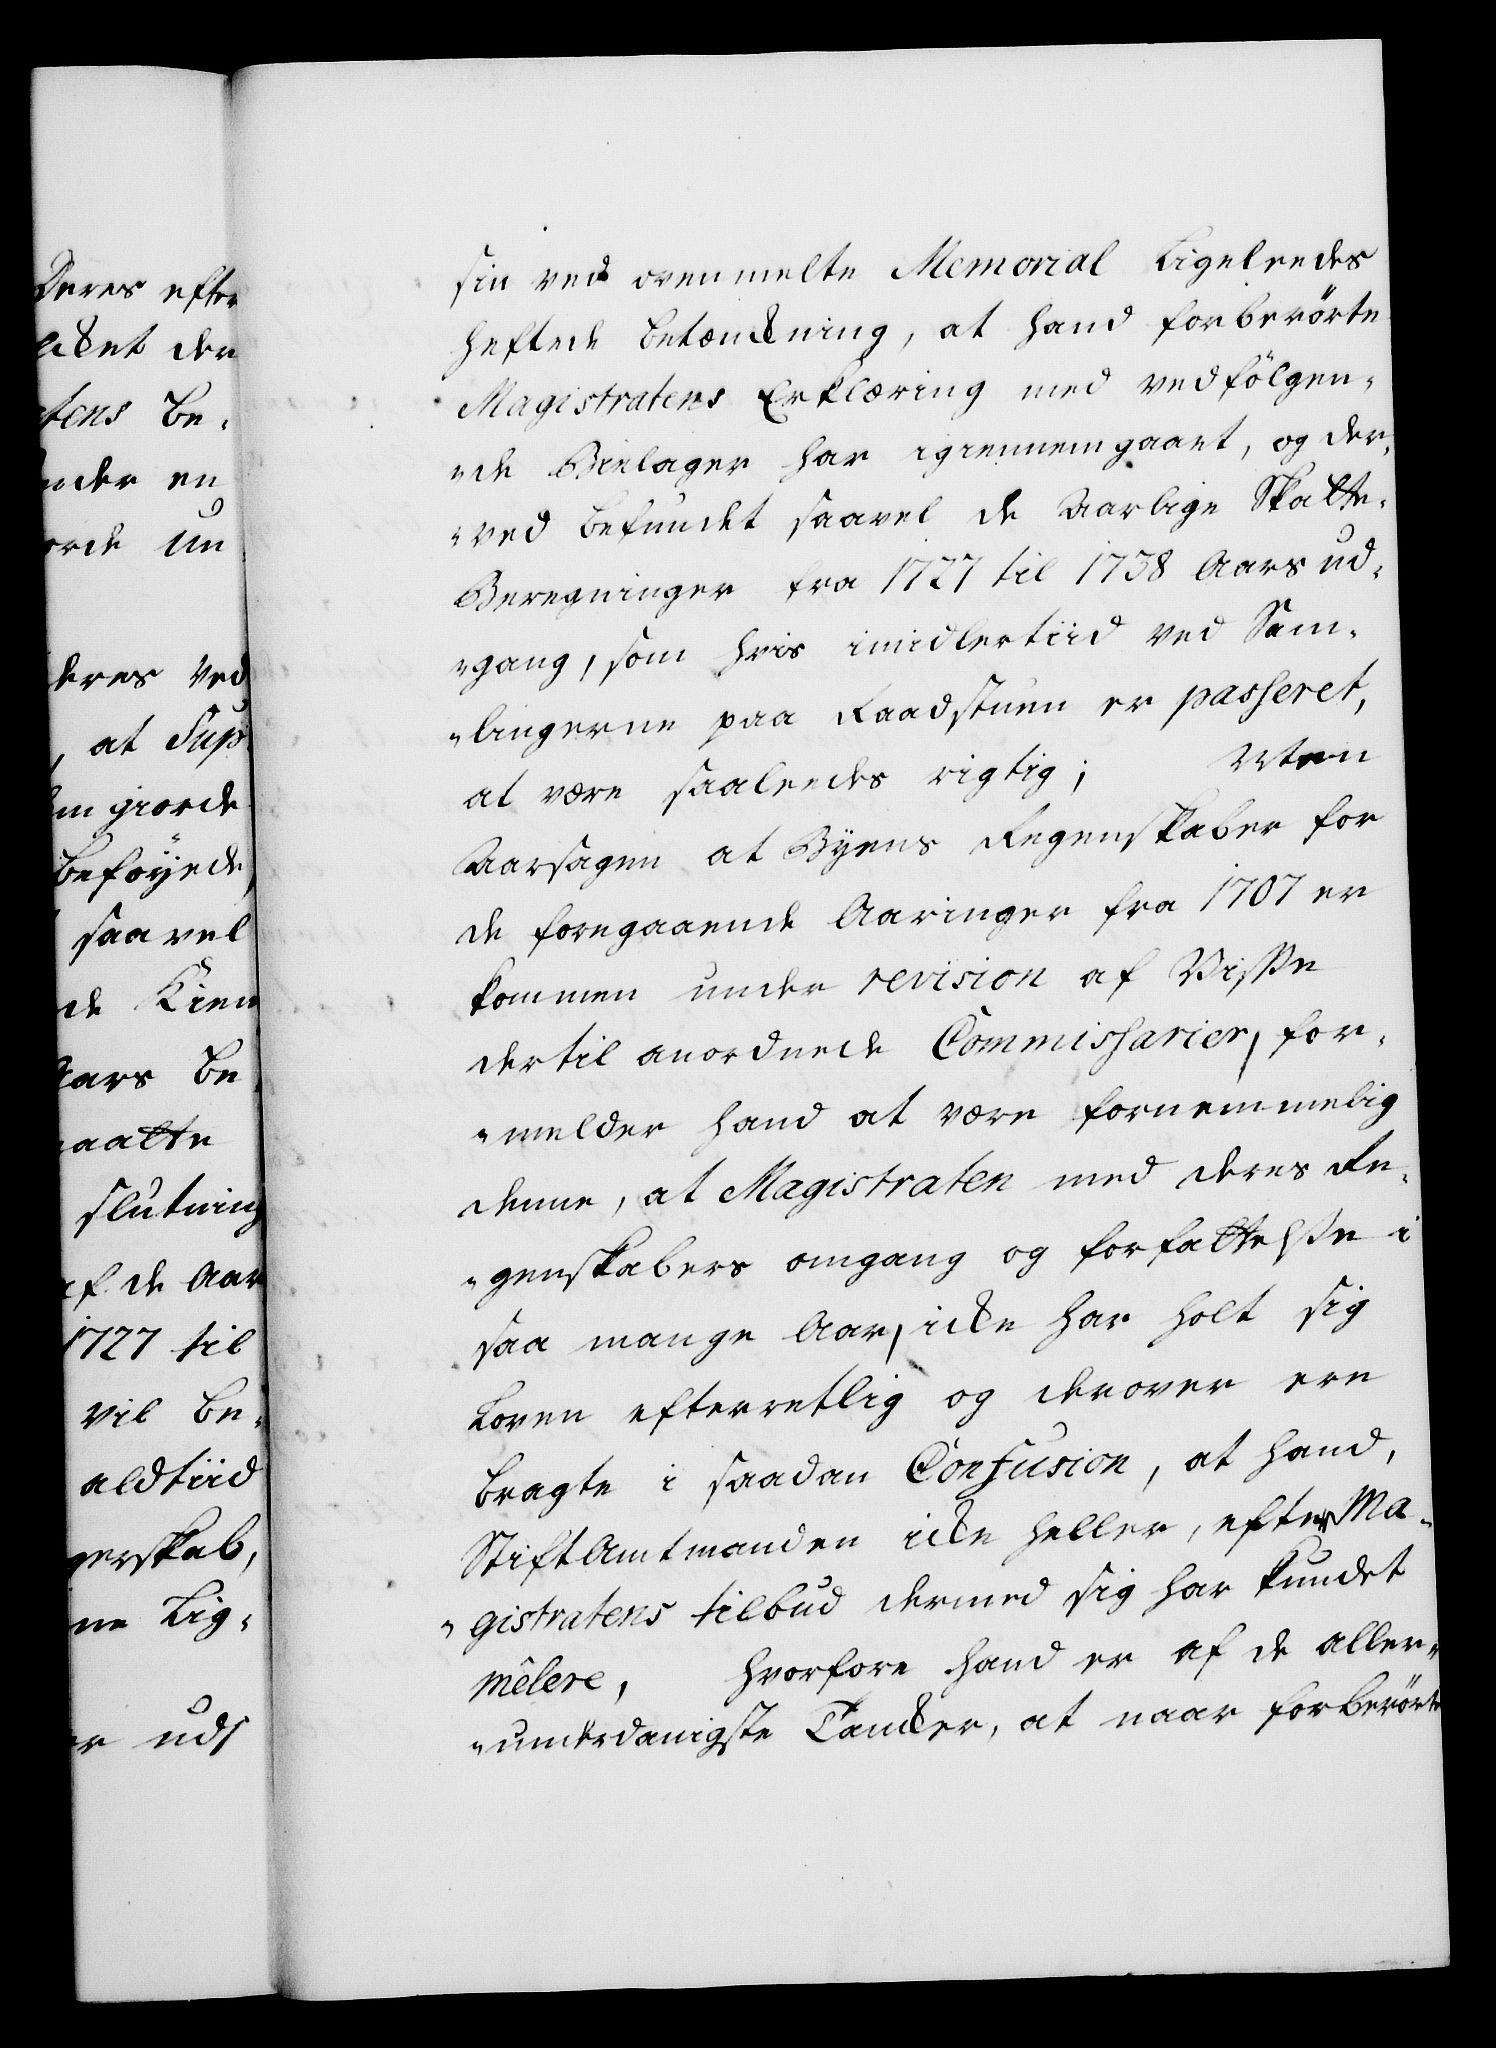 Deres efter
icket der
tens be-
nder en
orde un
deres ved
, at Sup
em giorde
beföÿede,
saavel
de Kien
Aars be
maatte
slutning
af de Aar
1727 til
vil be-
aldtiid
gerskab,
ne Lig-
er uds
sin ved ovenmelte Memorial Ligeleedes
heftede betænckning, at hand forberörte
Magistratens Erklæring med vedfölgen-
-de Bielager har igiennemgaaet, og der-
-ved befundet saavel de Aarlige Skatte-
Beregninger fra 1727 til 1738 Aars ud-
-gang, som hvis imidlertiid ved Sam-
-lingerne paa Raadstuen er passeret,
at være saaleedes rigtig; Men
Aarsagen at Byens Regenskaber for
de foregaaende Aaringer fra 1707 er
kommen under revision af Visse
dertil anordnede Commissarier, for-
-melder hand at være fornemmelig
denne, at Magistraten med deres Re-
-genskabers omgang og forfattelsse i
saa mange Aar, icke har holt sig
Loven efterretlig og derover ere
bragte i saadan Confusion, at hand,
StiftAmtmanden icke heller, efter Ma-
-gistratens tilbud dermed sig har kundet
mêlere, hvorfore hand er af de aller-
-underdanigste Tancker, at naar forberörte